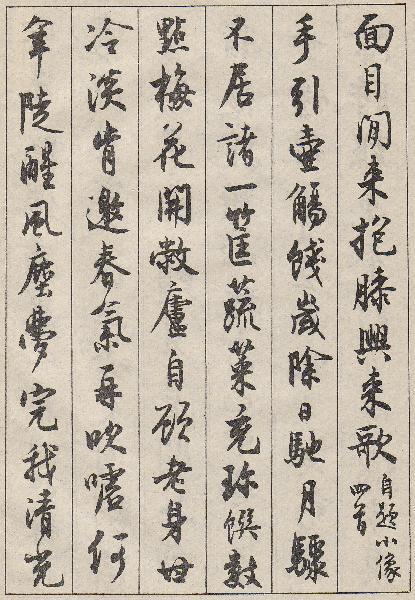 面目閒来抱膝興来歌
自題小像
四首
手引壺觴餞歲除日馳月驟
不居諸一筐蔬菜充珍饌數
點梅花開敝廬自顧老身甘
冷淡肯邀春氣再吹噓何
年陡醒風塵夢完我清光